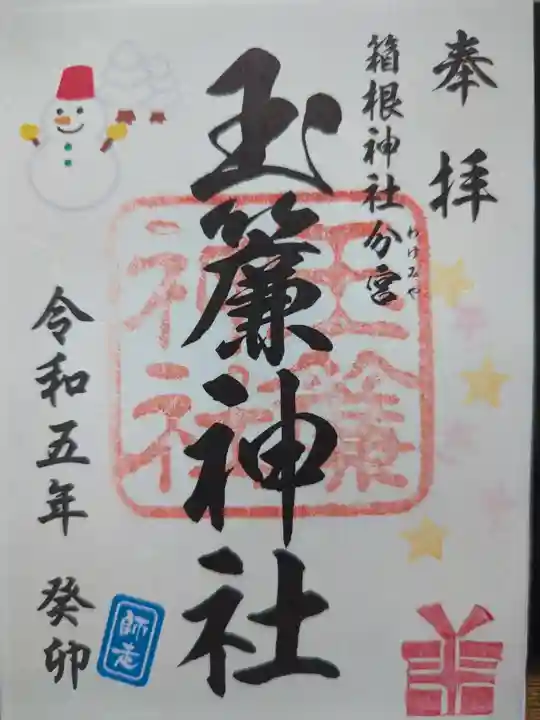 奉拝
箱根神社分宮
わけみや
玉簾神社
玉簾
神社
令和五年 癸卯
師走